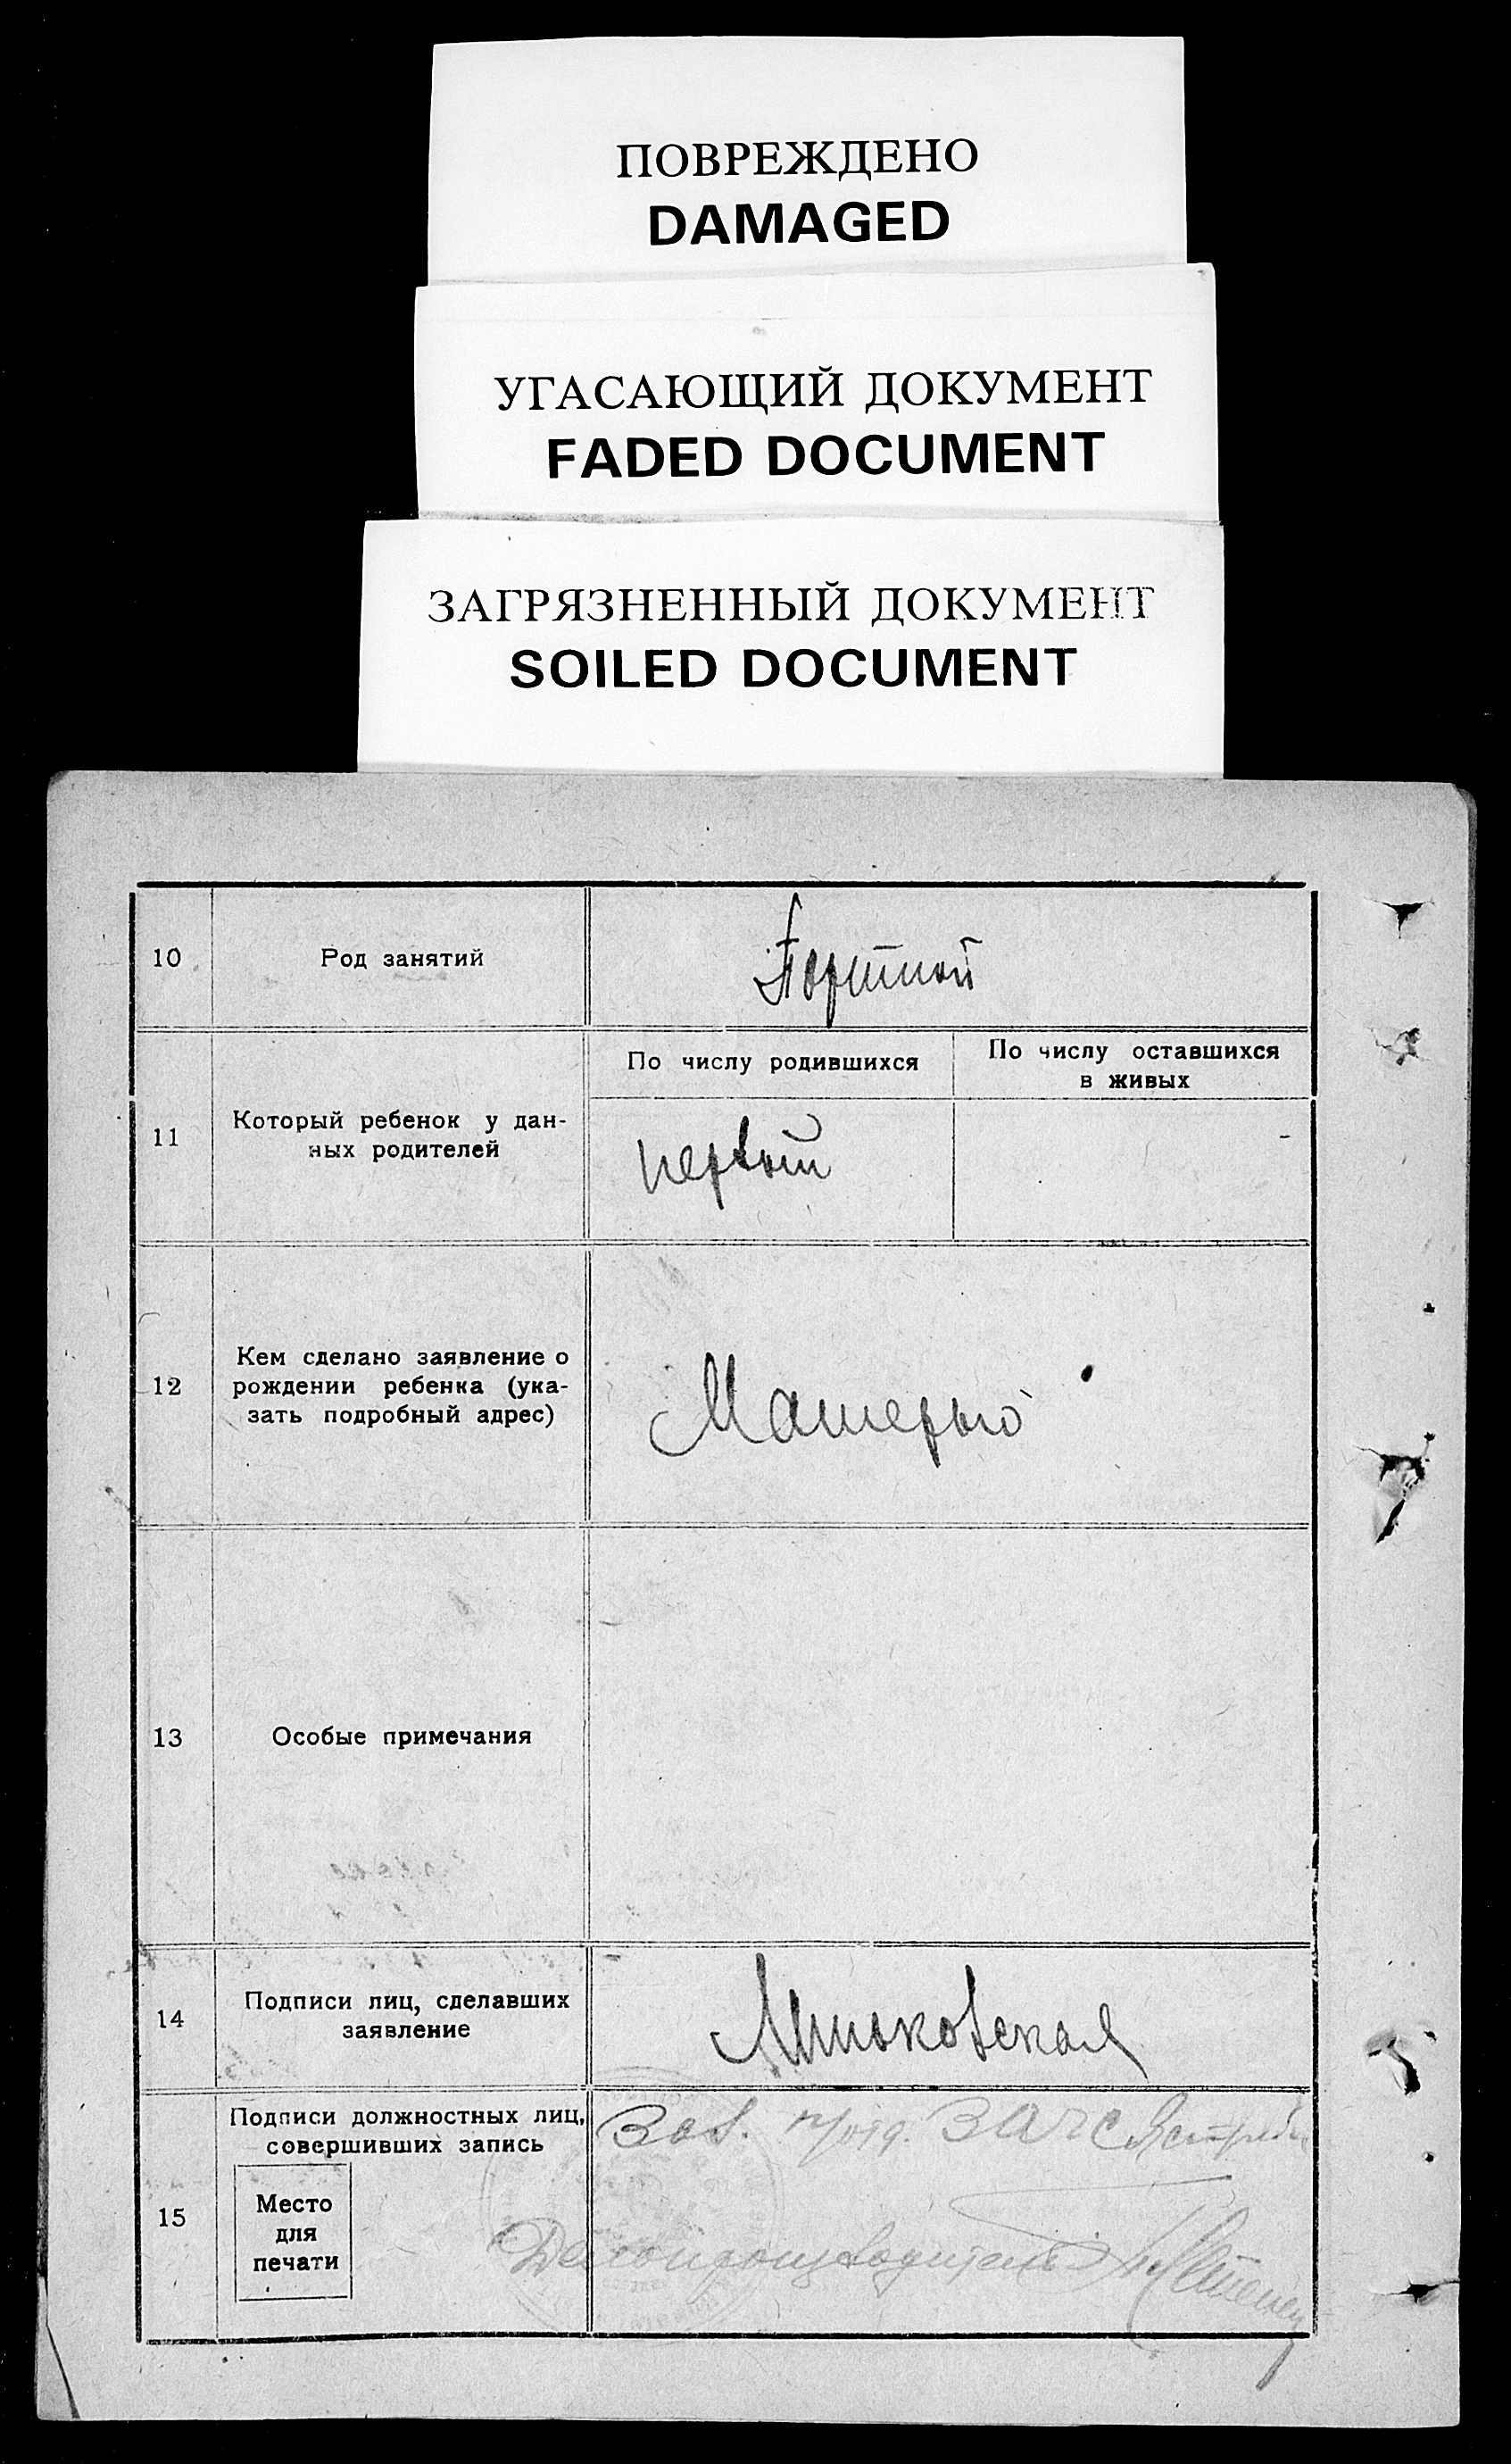 ПОВРЕЖДЕНО
DAMAGED
УГАСАЮЩИЙ ДОКУМЕНТ
FADED DOCUMENT
ЗАГРЯЗНЕННЫЙ ДОКУМЕНТ
SOILED DOCUMENT
10
Род занятий
Портной
11
Который ребенок у дан-
ных родителей
По числу родившихся
первый
По числу оставшихся
в живых
-
12
Кем сделано заявление о
рождении ребенка (ука-
зать подробный адрес)
Матерью
13
Особые примечания
14
Подписи лиц, сделавших
заявление
15
Подписи должностных лиц,
совершивших запись
Место
для
печати
Зав. п/отд. ЗАГС
Делопроизводитель